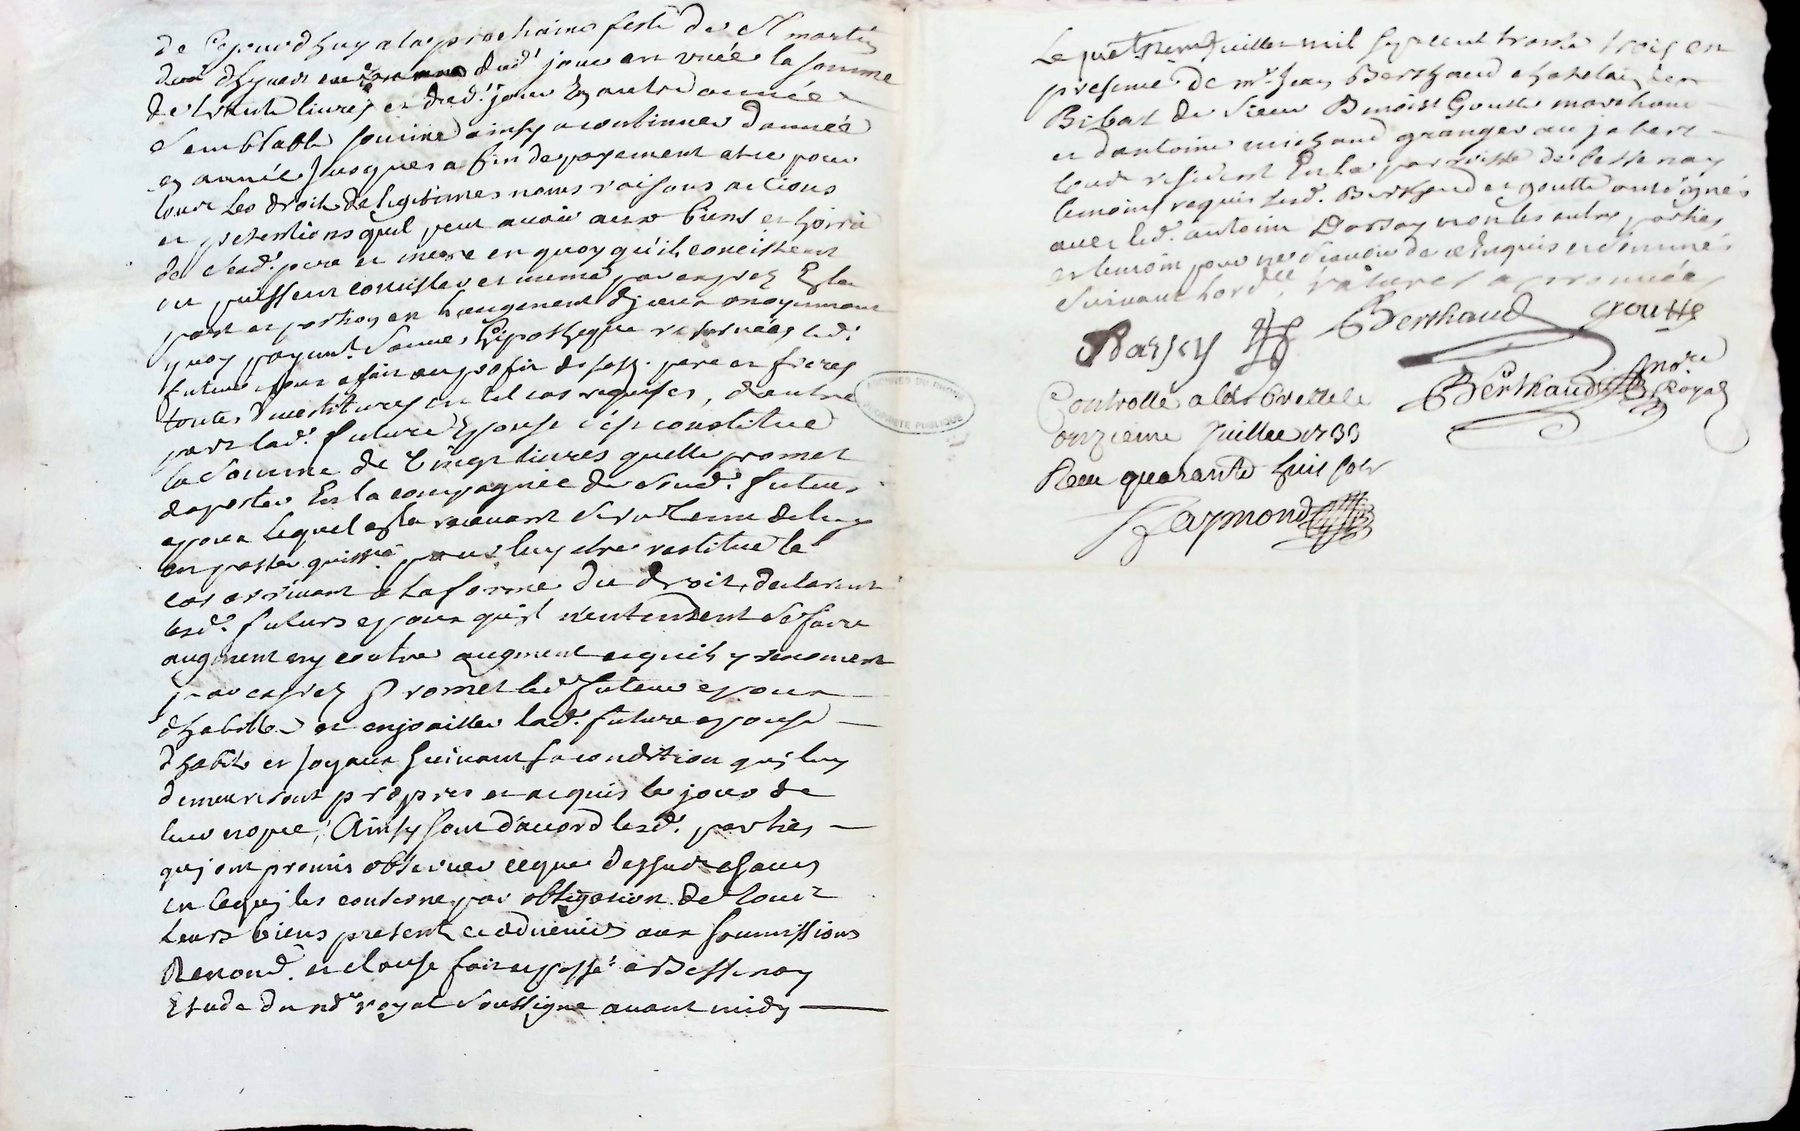 de cejourdhuy a la prochaine feste de St martin
dud. jour en un ée la somme
de trente livres et dud. jour en autre année
semblable somme ainsy a continuer dannée
en année Jusques a fin de payement et ce pour
tous les droits de legitimes noms raisons actions
et pretentions quil peut avoir aux biens et hoirie
de sesd. pere et mere en quoy qu'ils consistent
ou puissent consister et meme par exprez En la
part et portion en l'augment moyennant
quoy payant. sauve l'hipotheque reservée led.
futur epoux a fait au profit de sesd. pere et freres
toutes d'investitures en tel cas requises, d'autre
part lad. future Epouse s'est constitué
la somme de vingt livres quelle promet
daporter En la compagnie de sond. futur
epoux lequel en la recevant sera tenu de luy
en passer quittce. pour luy etre restitué le
cas arrivant a la forme du droit, declarant
lesd. futurs epoux qu'il n'entendent se faire
augment ny contre augment et quils y renoncent
par exprez Promet led. futur epoux
dhabiller et enjoailler lad. future epouse
d'habits et Joyaux suivant sa condition qui luy
demeureront propres et acquis le jour de
leur nopce, Ainsy sont d'accord lesd. parties
qui ont promis observer ce que dessus chacun
en ce qui les concerne par obligation de tous
leurs biens present et advenir aux soumissions
Renond. et clause fait et passé a Bessenay
Etude du nore royal soussigne avant midy
Le Juillet mil sept cent trente trois en
presence de mr. Jean Berthaud chatelain de
Bibost de sieur Benoist Goutte marchand
et d'antoine michaud granger au jabert
tous residant En la parroisse de bessenay
temoins requis Lesd. Berthaud et goutte ont signé
avec led. antoine Dorsay non les autres parties
et temoin pour ne sçavoir de ce Enquis et sommés
suivant l'ordce. ratures approuvées
Dorsay Berthaud goutte
Berthaud nore. Royal
Controllé a Larbrelle le
onzieme Juillet 1733
Receu quarante huit sols
Raymond
ARCHIVES DU RHONE
PROPRIÉTÉ PUBLIQUE